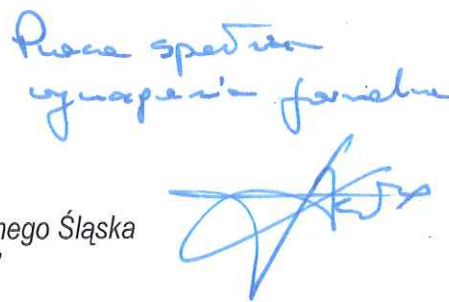 Praca spełnia
wymagania formalne
nego Śląska